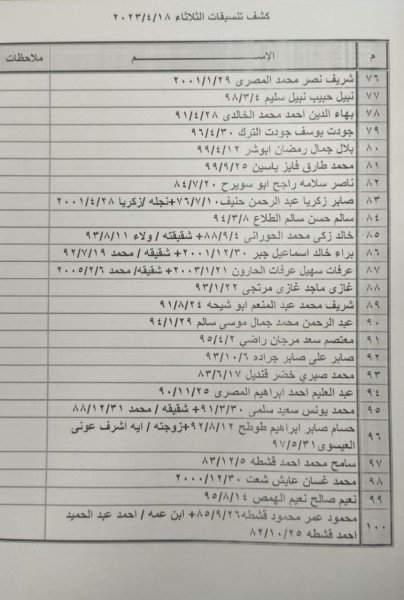 كشف تنسيقات الثلاثاء ٢٠٢٣/٤/١٨
م الاســـم ملاحظات
٧٦ شريف نصر محمد المصرى ٢٠٠١/١/٢٩
٧٧ نبيل حبيب نبيل سليم ٩٨/٣/٤
٧٨ بهاء الدين احمد محمد الخالدى ٩١/٤/٢٨
٧٩ جودت يوسف جودت الترك ٩٦/٤/٣٠
٨٠ بلال جمال رمضان ابوشر ٩٩/٤/١٢
٨١ محمد طارق فايز ياسين ٩٩/٩/٢٥
٨٢ ناصر سلامه راجح ابو سويرح ٨٤/٧/٢٠
٨٣ صابر زكريا عبد الرحمن حنيف ٧٦/٧/١٠+نجله /زكريا ٢٠٠١/٤/٢٨
٨٤ سالم حسن سالم الطلاع ٩٤/٣/٨
٨٥ خالد زكى محمد الحورانى ٨٨/٩/٤+ شقيقته / ولاء ٩٣/٨/١١
٨٦ براء خالد اسماعيل جبر ٢٠٠١/١٢/٣٠+ شقيقه / محمد ٩٢/٧/١٩
٨٧ عرفات سهيل عرفات الحارون ٢٠٠٣/١/٢١+ شقيقه/ محمد ٢٠٠٥/٢/٦
٨٨ غازى ماجد غازى مرتجى ٩٣/١/٢٢
٨٩ شريف محمد عبد المنعم ابو شيحه ٩١/٨/٢٤
٩٠ عبد الرحمن محمد جمال موسى سالم ٩٤/١/٢٩
٩١ معتصم سعد مرجان راضي ٩٥/٤/٢
٩٢ صابر على صابر جراده ٩٣/١٠/٦
٩٣ محمد صبري خضر قنديل ٨٣/٦/١٧
٩٤ عبد العليم احمد ابراهيم المصرى ٩٠/١١/٢٥
٩٥ محمد يونس سعيد سلمى ٩١/٣/٣٠+ شقيقه / محمد ٨٨/١٢/٣١
٩٦ حسام صابر ابراهيم طوطح ٩٢/٨/١٢+زوجته / ايه اشرف عونى
العيسوى ٩٧/٥/٣١
٩٧ سامح محمد احمد قشطه ٨٣/١٢/٥
٩٨ محمد غسان عايش شعت ٢٠٠٠/١٢/٣٠
٩٩ نعيم صالح نعيم الهمص ٩٥/٨/١٤
١٠٠ محمود عمر محمود قشطه ٨٥/٩/٢٦+ ابن عمه / احمد عبد الحميد
احمد قشطه ٨٢/١٠/٢٥